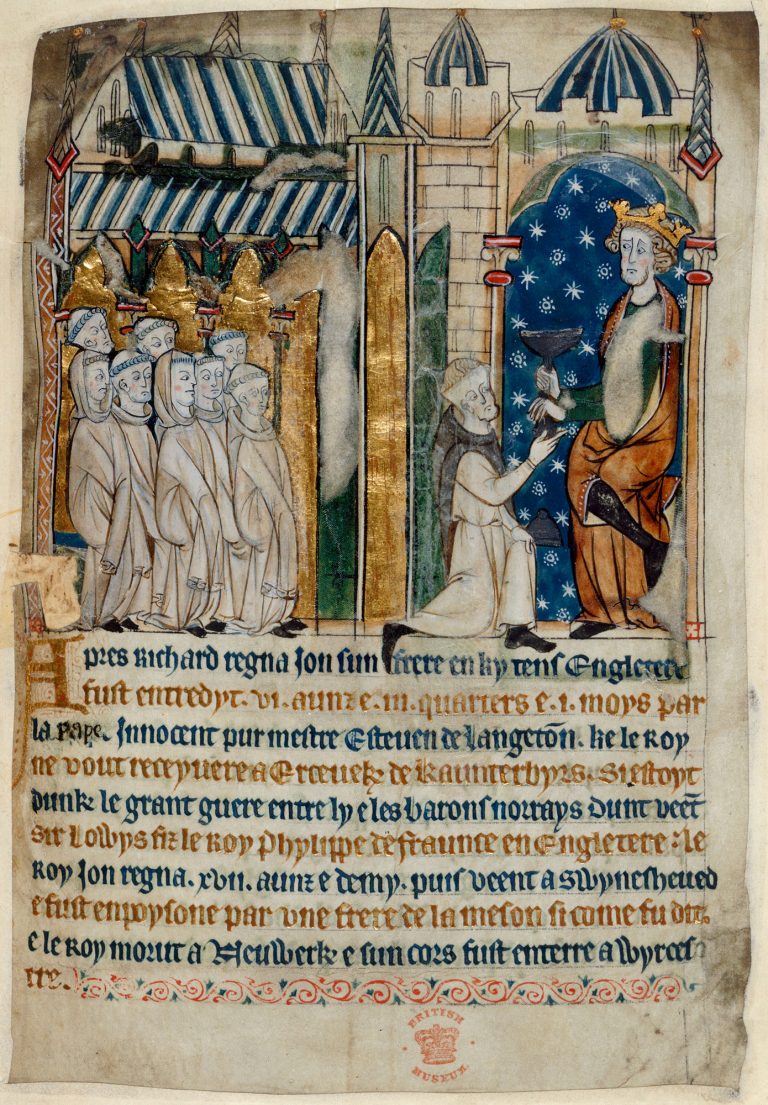 Apres Richard regna Jon sun frere en ky tens Engletere
fust entredyt . vi . aunz e . iii . quarters e . i . moys par
la Pape . Innocent pur mestre Esteven de Langetōn . ke le Roy
ne vout receyvere a Erceuek de Kaunterbyrs . Si estoyt
dunk le grant guere entre ly e les barons norrays dunt veēt
Sir Lowys fiz le Roy Phylippe de Fraunce en Engletere : le
Roy Jon regna . xvii . aunz e demy . puis veent a Swynesheued
e fust enpoysone par vne frere de la meson si come fu dit .
e le Roy morut a Neuwerk e sun cors fust enterre a Wyrces
tre .
BRITISH
MUSEUM